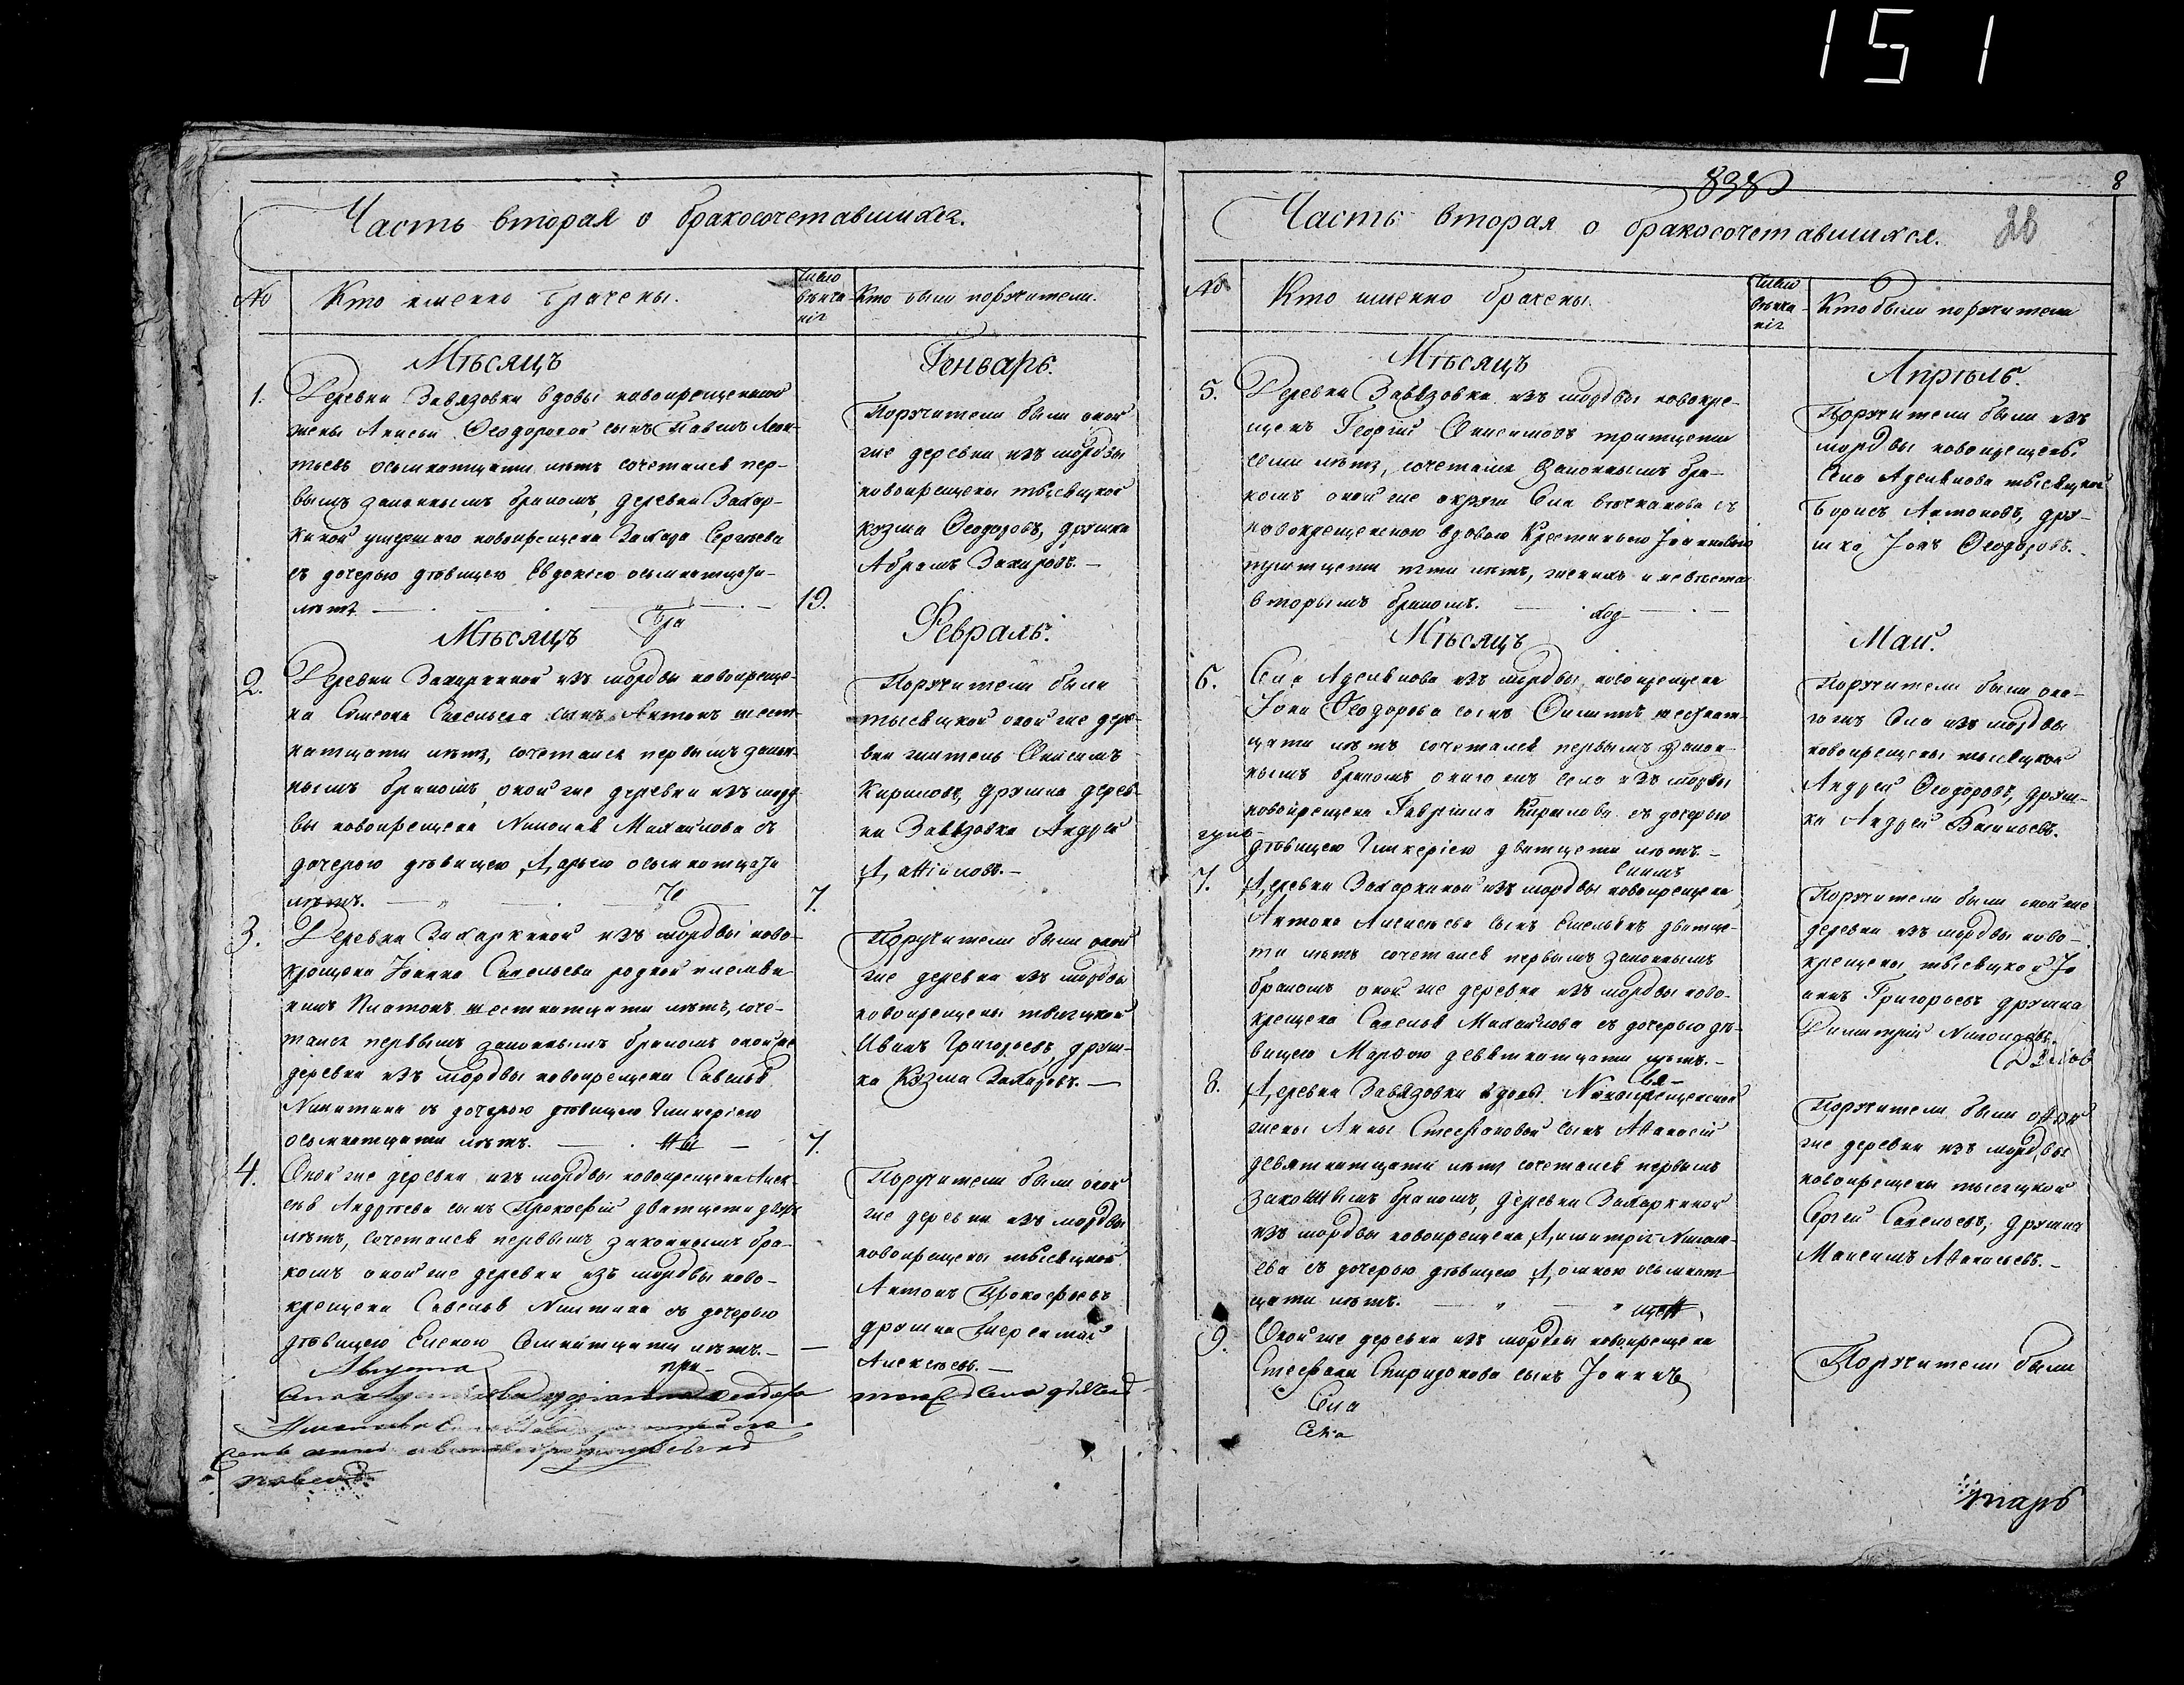 151
Часть вторая о бракосочетавшихся.
№ Кто именно брачены. Число вѣнчанія Кто были поржчители.
Мѣсяцъ Генварь.
1. Деревни Завязовки вдовы новокрещенной
жены Анисьи Ѳеодоровой сынъ Павелъ Леон-
тьевъ осьмнатцати лѣтъ сочетался пер-
вымъ законнымъ бракомъ, деревни Захар-
киной умершаго новокрещена Захара Сергѣева
съ дочерью дѣвицею Евдокіею осьмнатцати
лѣтъ 19.
Поржчители были оной
же деревни изъ мордвы
новокрещены тысяцкой
Кузма Ѳеодоровъ, дружка
Абрамъ Захаровъ.
Мѣсяцъ Февраль.
2. Деревни Захаркиной изъ мордвы новокреще-
на Симеона Савельева сынъ Антонъ шест-
натцати лѣтъ, сочетался первымъ закон-
нымъ бракомъ, оной же деревни изъ морд-
вы новокрещена Николая Михайлова съ
дочерью дѣвицею Дарьею осьмнатцати
лѣтъ. 7.
Поржчители были
тысяцкой оной же дере-
вни житель Онисимъ
Кириловъ, дружка дерев-
ни Завязовки Андрей
3. Деревни Захаркиной изъ мордвы ново-
крещена Іоанна Савельева родной племян-
никъ Платонъ шестнатцати лѣтъ, соче-
тался первымъ законнымъ бракомъ оной же
деревни изъ мордвы новокрещена Савелья
Никитина съ дочерью дѣвицею Гликеріею
осьмнатцати лѣтъ. 7.
Поручители были оной
же деревни изъ мордвы
новокрещены тысяцкой
Иванъ Григорьевъ, друж-
ка Кузма Захаровъ.
4. Оной же деревни изъ мордвы новокрещена Алек-
сѣя Андрѣева сынъ Прокофій дватцати двухъ
лѣтъ, сочетался первымъ законнымъ бра-
комъ оной же деревни изъ мордвы ново-
крещена Савелья Никитина съ дочерью
дѣвицею Еленою осмнатцати лѣтъ.
Поручители были оной
же деревни изъ мордвы
новокрещены тысяцкой
Антонъ Прокофьевъ
дружка
Алексѣевъ.
Августа
838
8
Часть вторая о бракосочетавшихся. 28
№ Кто именно брачены. Число вѣнчанія Кто были поржчители
Мѣсяцъ Апрѣль.
5. Деревни Завязовки изъ мордвы новокре-
щенъ Георгій Онисимовъ тритцати
семи лѣтъ, сочетался законнымъ бра-
комъ оной же округи села съ
новокрещенною вдовою Іоанновою
тритцати пяти лѣтъ, женихъ и невѣста
вторымъ бракомъ.
Поржчители были изъ
мордвы новокрещены
села тысяцкой
Борисъ Антоновъ, дру-
жка Іонъ Ѳеодоровъ.
Мѣсяцъ Маи.
6. Села изъ мордвы новокрещена
Іона Ѳеодорова сынъ Филипъ шестнат-
цати лѣтъ сочетался первымъ закон-
нымъ бракомъ онаго жъ села изъ мордвы
новокрещена Гаврила Кирилова съ дочерью
дѣвицею Гликеріею дватцати лѣтъ.
Поржчители были она-
гожъ села изъ мордвы
новокрещены тысяцкой
Андрей Ѳеодоровъ, друж-
ка Андрей Васильевъ.
7. Деревни Захаркиной изъ мордвы новокрещена
Антона Алексѣева сынъ Емельянъ дватца-
ти лѣтъ сочетался первымъ законнымъ
бракомъ оной же деревни изъ мордвы ново-
крещена Савелья Михайлова съ дочерью дѣ-
вицею Марѳою девятнатцати лѣтъ.
Поржчители были оной же
деревни изъ мордвы ново-
крещены тысяцкой Іо
аннъ Григорьевъ дружка
Димитрій
8. Деревни Завязовки вдовы Новокрещенной
жены Анны Стефановой сынъ Аѳанасій
девятнатцати лѣтъ сочетался первымъ
законнымъ бракомъ, деревни Захаркиной
изъ мордвы новокрещена Димитрія Никола-
ева съ дочерью дѣвицею Домною осьмнат-
цати лѣтъ.
Поржчители были оной
же деревни изъ мордвы
новокрещены тысяцкой
Сергей Савельевъ, дружка
Максимъ Аѳанасьевъ.
9. Оной же деревни изъ мордвы новокрещена
Стефана Спиридонова сынъ Іоаннъ
Поржчители были
Села
Села